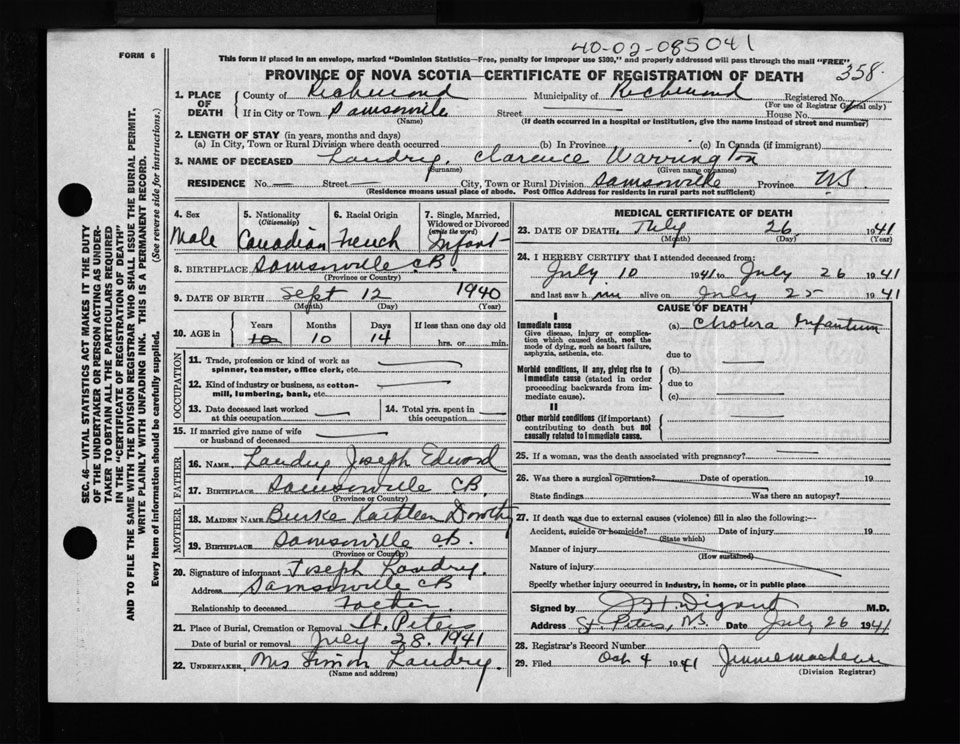 40-02-085041
FORM 6
This form if placed in an envelope, marked "Dominion Statistics—Free, penalty for improper use $300," and properly addressed will pass through the mail "FREE".
PROVINCE OF NOVA SCOTIA—CERTIFICATE OF REGISTRATION OF DEATH
358
1. PLACE OF DEATH County of Richmond Municipality of Richmond Registered No.
(For use of Registrar General only)
If in City or Town Samsonville Street House No.
(Name) (If death occurred in a hospital or institution, give the name instead of street and number)
2. LENGTH OF STAY (in years, months and days)
(a) In City, Town or Rural Division where death occurred (b) In Province (c) In Canada (if immigrant)
3. NAME OF DECEASED Landry, Clarence Warrington
(Surname) (Given name or names)
RESIDENCE No. — Street — City, Town or Rural Division Samsonville Province N.S.
(Residence means usual place of abode. Post Office Address for residents in rural parts not sufficient)
4. Sex
Male
5. Nationality
(Citizenship)
Canadian
6. Racial Origin
French
7. Single, Married, Widowed or Divorced
(write the word)
Infant
8. BIRTHPLACE Samsonville C.B.
(Province or Country)
9. DATE OF BIRTH Sept 12 1940
(Month) (Day) (Year)
10. AGE in Years Months Days If less than one day old
10 10 14 hrs. or min.
OCCUPATION
11. Trade, profession or kind of work as spinner, teamster, office clerk, etc.
12. Kind of industry or business, as cotton-mill, lumbering, bank, etc.
13. Date deceased last worked at this occupation
14. Total yrs. spent in this occupation
15. If married give name of wife or husband of deceased
FATHER
16. NAME Landry Joseph Edward
17. BIRTHPLACE Samsonville C.B.
(Province or Country)
MOTHER
18. MAIDEN NAME Burke Kathleen Dorothy
19. BIRTHPLACE Samsonville C.B.
(Province or Country)
20. Signature of informant Joseph Landry.
Address Samsonville C.B.
Relationship to deceased Father
21. Place of Burial, Cremation or Removal St. Peters
Date of burial or removal July 28. 1941
22. UNDERTAKER Mrs Simon Landry.
(Name and address)
MEDICAL CERTIFICATE OF DEATH
23. DATE OF DEATH July 26 1941
(Month) (Day) (Year)
24. I HEREBY CERTIFY that I attended deceased from:
July 10 1941 to July 26 1941
and last saw h im alive on July 25 1941
CAUSE OF DEATH
I
Immediate cause
Give disease, injury or complication which caused death, not the mode of dying, such as heart failure, asphyxia, asthenia, etc.
(a) Cholera Infantum
due to
Morbid conditions, if any, giving rise to immediate cause (stated in order proceeding backwards from immediate cause).
(b)
due to
(c)
II
Other morbid conditions (if important) contributing to death but not causally related to immediate cause.
25. If a woman, was the death associated with pregnancy?
26. Was there a surgical operation? Date of operation 19
State findings Was there an autopsy?
27. If death was due to external causes (violence) fill in also the following:—
Accident, suicide or homicide? Date of injury 19
(State which)
Manner of injury
(How sustained)
Nature of injury
Specify whether injury occurred in industry, in home, or in public place
Signed by M.D.
Address St. Peters, N.S. Date July 26 1941
28. Registrar's Record Number
29. Filed Oct 4 1941
(Division Registrar)
SEC. 46—VITAL STATISTICS ACT MAKES IT THE DUTY
OF THE UNDERTAKER OR PERSON ACTING AS UNDER-
TAKER TO OBTAIN ALL THE PARTICULARS REQUIRED
IN THE "CERTIFICATE OF REGISTRATION OF DEATH"
AND TO FILE THE SAME WITH THE DIVISION REGISTRAR WHO SHALL ISSUE THE BURIAL PERMIT.
WRITE PLAINLY WITH UNFADING INK. THIS IS A PERMANENT RECORD.
Every item of information should be carefully supplied. (See reverse side for instructions.)